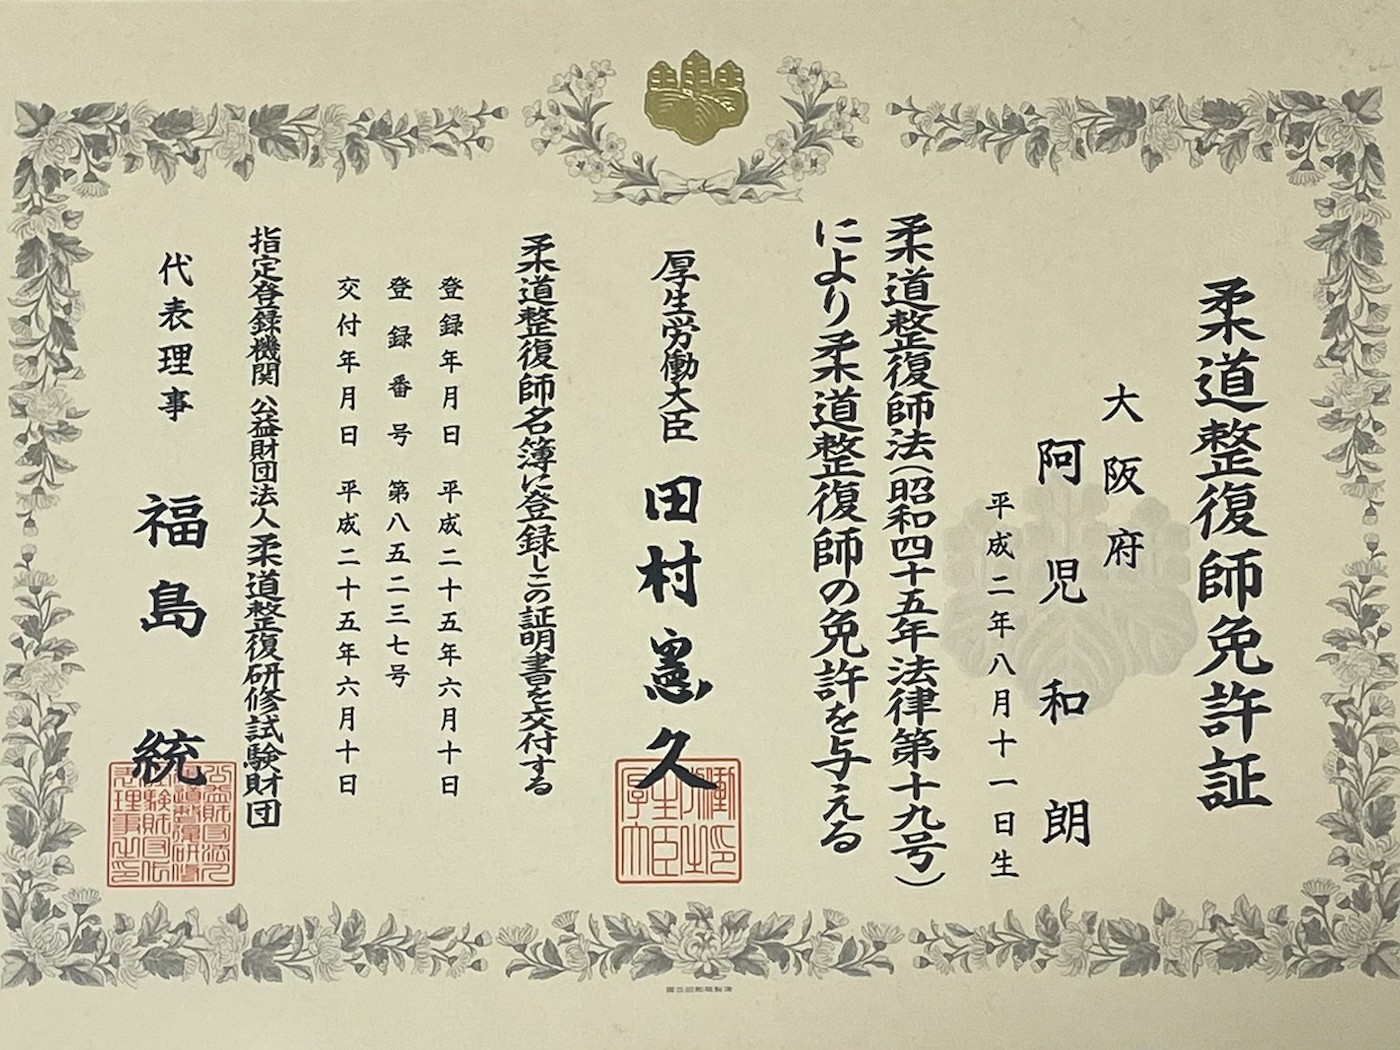 柔道整復師免許証
大阪府
阿児和朗
平成二年八月十一日生
柔道整復師法(昭和四十五年法律第十九号)
により柔道整復師の免許を与える
厚生労働大臣 田村憲久
柔道整復師名簿に登録しこの証明書を交付する
登録年月日 平成二十五年六月十日
登録番号 第八五二三七号
交付年月日 平成二十五年六月十日
指定登録機関 公益財団法人柔道整復研修試験財団
代表理事 福島統